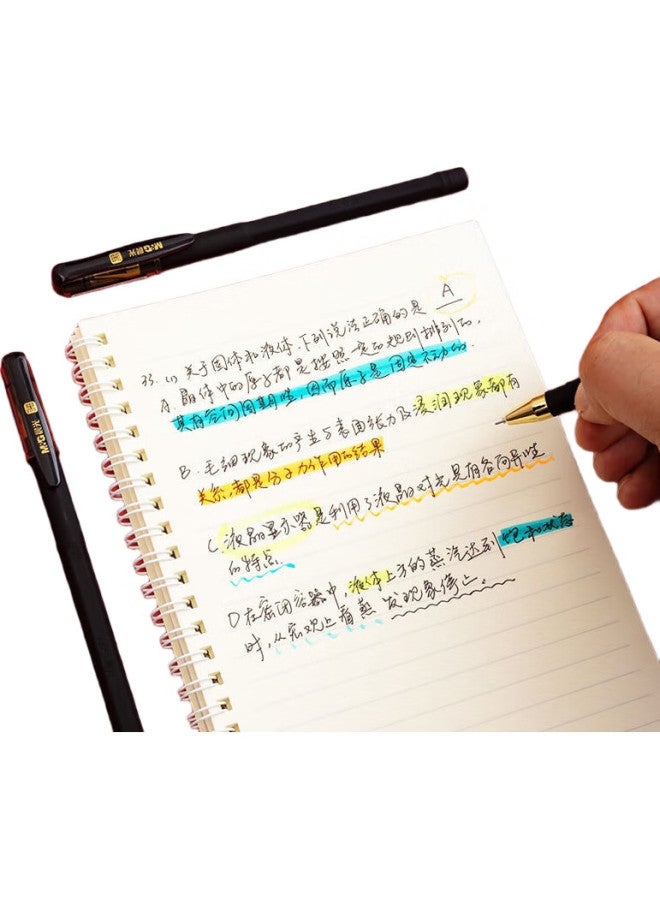 M&G晨光
M&G晨光
A
33. (1) 关于固体和液体,下列说法正确的是
A. 晶体中的原子都是按照一定的规则排列的,
具有空间周期性,因而原子是固定不动的.
B. 毛细现象的产生与表面张力及浸润现象都有
关系,都是分子力作用的结果
C. 液晶显示器是利用了液晶对光具有各向异性
的特点.
D 在密闭容器中,液体上方的蒸汽达到饱和状态
时,从宏观上看蒸发现象停止。